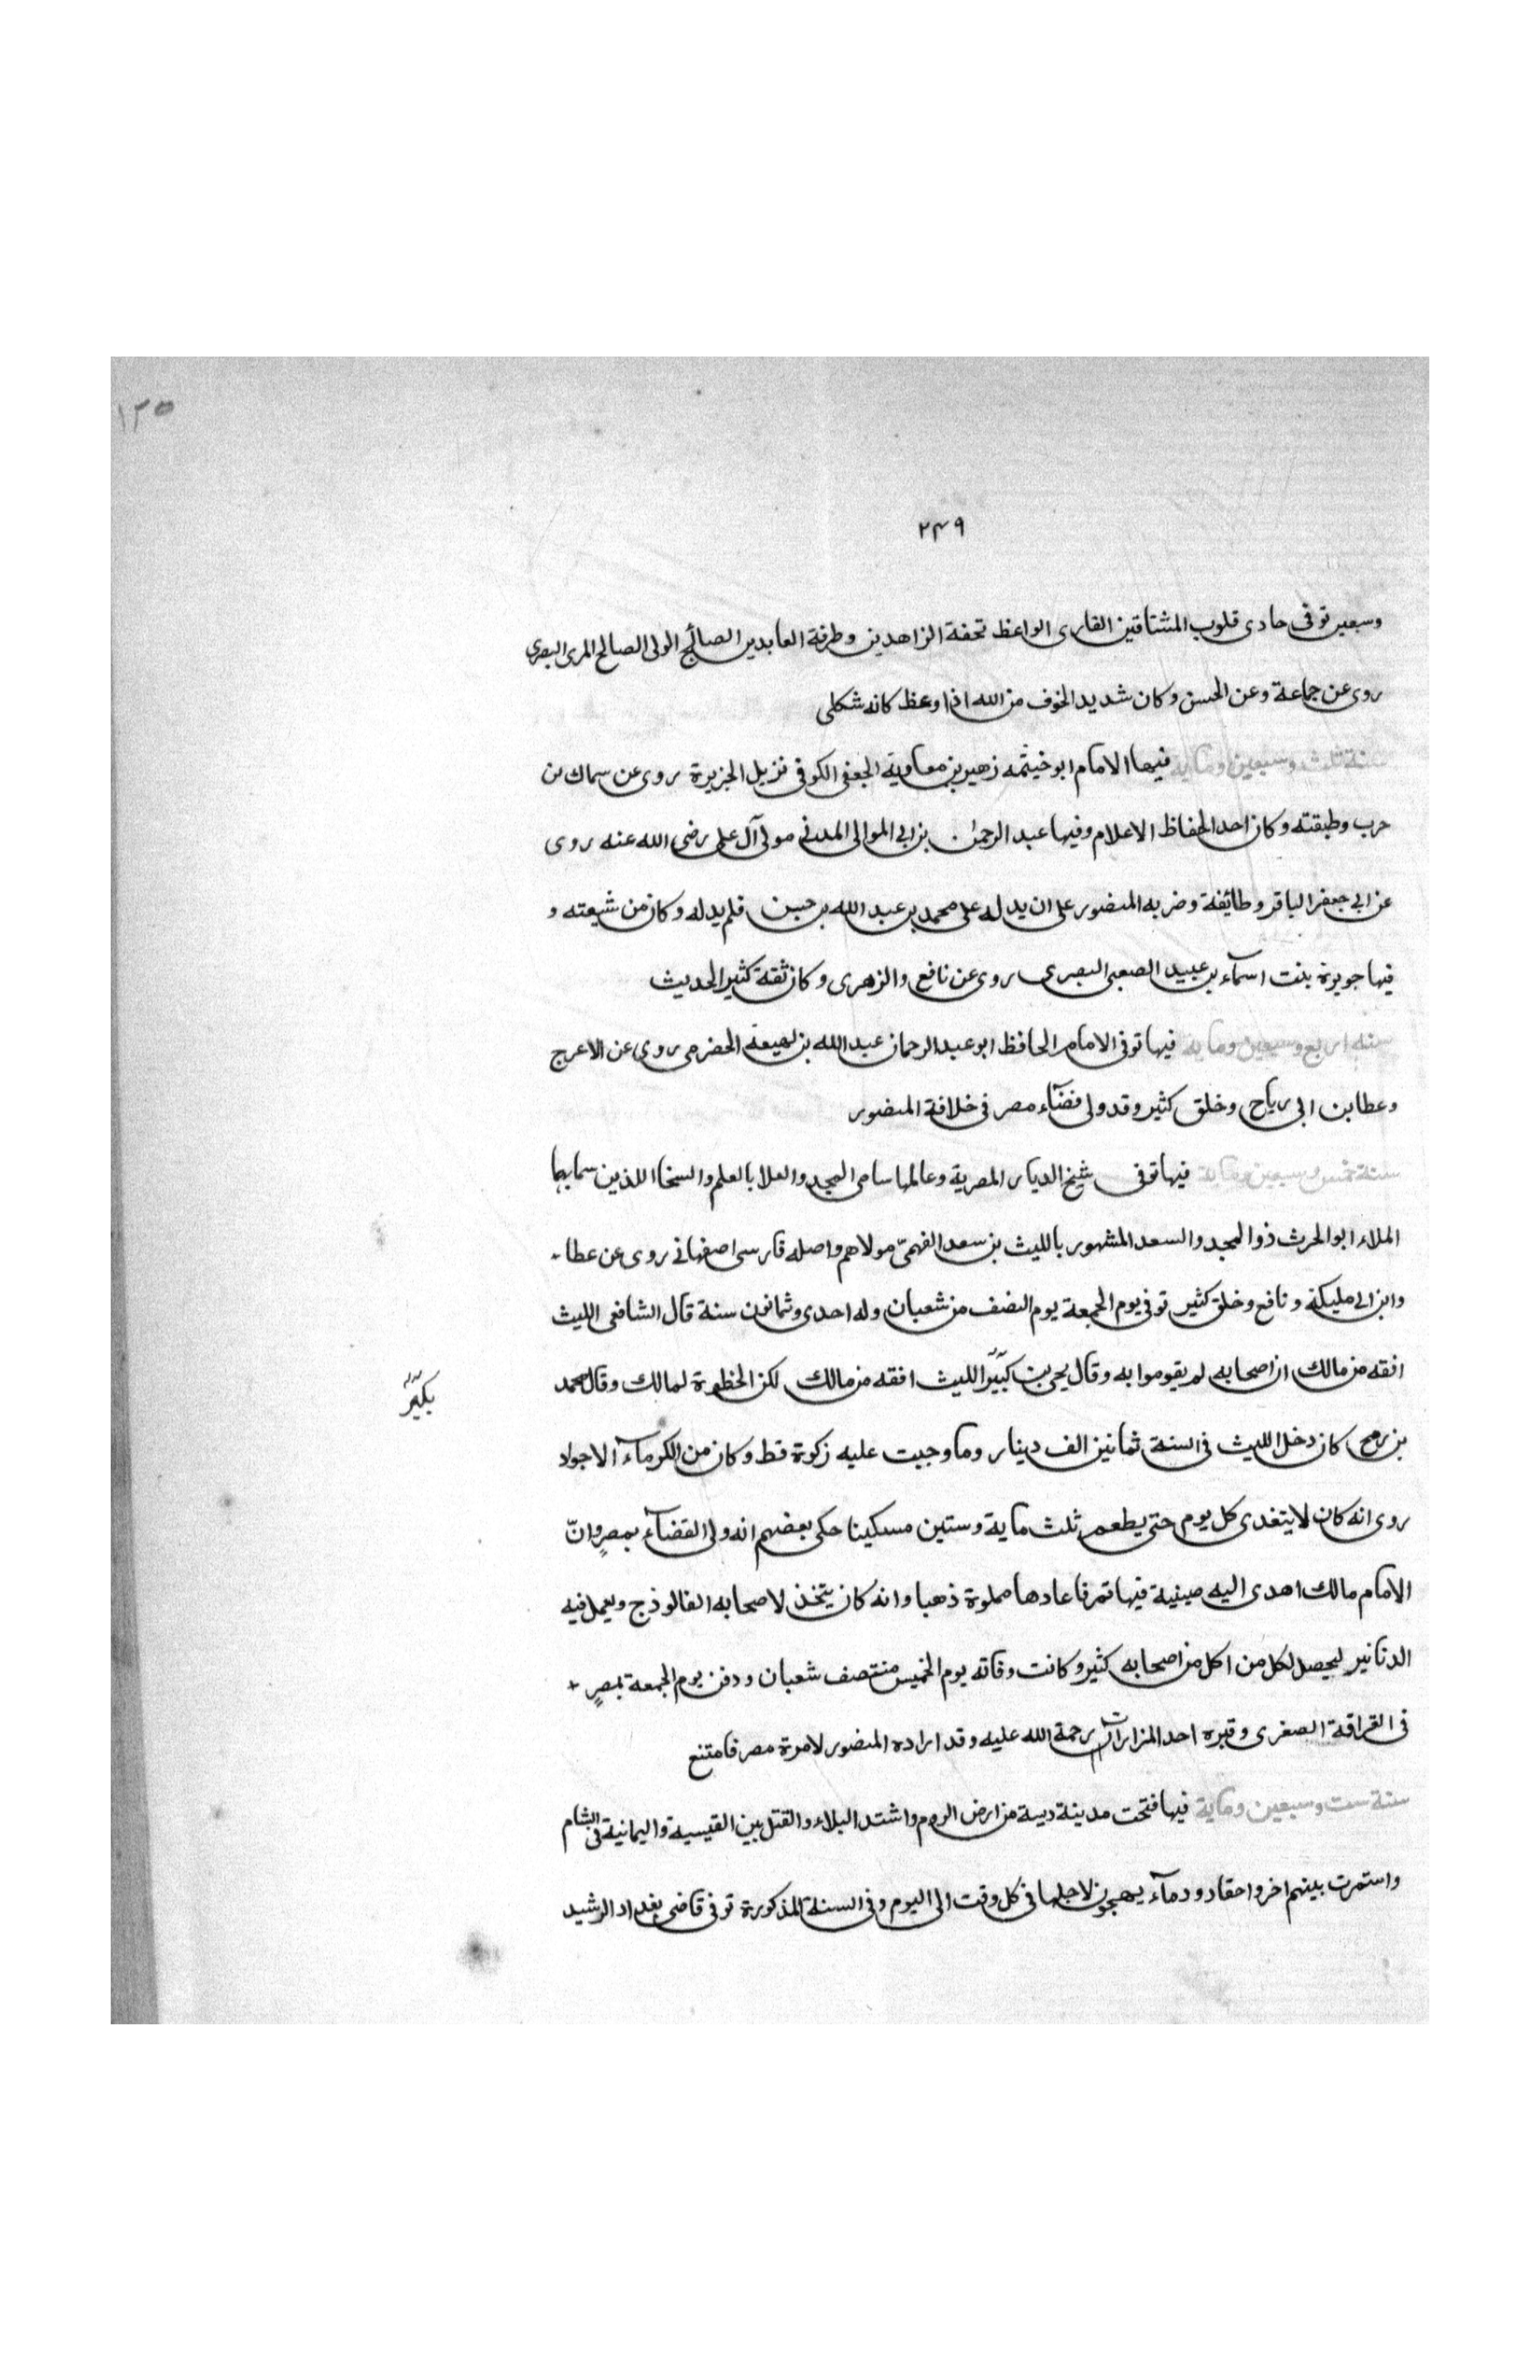 ١٢٥
٢٣٩
وسبعين توفى حادى قلوب المشتاقين القارى الواعظ تحفة الزاهدين وطرفة العابدين الصالح الولى الصالح المرى البصرى
روى عن جماعة وعن الحسن وكان شديد الخوف من الله اذا وعظ كانه شكلى
سنة ثلث وسبعين وماية فيها الامام ابو خيثمه زهير بن معاوية الجعفى الكوفى نزيل الجزيرة روى عن سماك بن
حرب وطبقته وكان احد الحفاظ الاعلام وفيها عبد الرحمن بن ابى الموالى المدنى مولى آل على رضى الله عنه روى
عن ابى جعفر الباقر وطائفة وضربه المنصور على ان يدله على محمد بن عبد الله بن حسن فلم يدله وكان من شيعته و
فيها جويرة بنت اسمآء بن عبيد الصعبى البصرى روى عن نافع والزهرى وكان ثقة كثير الحديث
سنة اربع وسبعين وماية فيها توفى الامام الحافظ ابو عبد الرحمان عبد الله بن لهيعة الحضرمى روى عن الاعرج
وعطا بن ابى رياح وخلق كثير وقد ولى قضآء مصر فى خلافة المنصور
سنة خمس وسبعين وماية فيها توفى شيخ الديار المصرية وعالمها سامى المجد والعلا بالعلم والسخا اللذين سما بهما
الملاء ابو الحرث ذو المجد والسعد المشهور بالليث بن سعد الفهمىّ مولاهم واصله فارسى اصفهانى روى عن عطا
وابن ابى مليكة ونافع وخلق كثير توفى يوم الجمعة يوم النصف من شعبان وله احدى وثمانون سنة قال الشافعى الليث
افقه من مالك ان اصحابه لم يقوموا به وقال يحيى بن كبير الليث افقه من مالك لكن الحظوة لمالك وقال محمد
بكير
بن رمح كان دخل الليث فى السنة ثمانين الف دينار وما وجبت عليه زكوة قط وكان من الكرمآء الاجواد
روى انه كان لا يتغدى كل يوم حتى يطعم ثلث ماية وستين مسكينا حكى بعضهم انه ولى القضآء بمصر وانّ
الامام مالك اهدى اليه صينية فيها تمر فاعادها مملوة ذهبا وانه كان يتخذ لاصحابه الفالوذج ويعمل فيه
الدنانير ليحصل لكل من اكل من اصحابه كثير وكانت وفاته يوم الخميس منتصف شعبان ودفن يوم الجمعة بمصر
فى القرافة الصغرى وقبره احد المزارات رحمة الله عليه وقد اراده المنصور لامرة مصر فامتنع
سنة ست وسبعين وماية فيها فتحت مدينة دبسة من ارض الروم واشتد البلاء والقتل بين القيسية واليمانية فى الشام
واستمرت بينهم اخر واحقاد ودمآء يهجون لاجلها فى كل وقت الى اليوم وفى السنة المذكورة توفى قاضى بغداد الرشيد